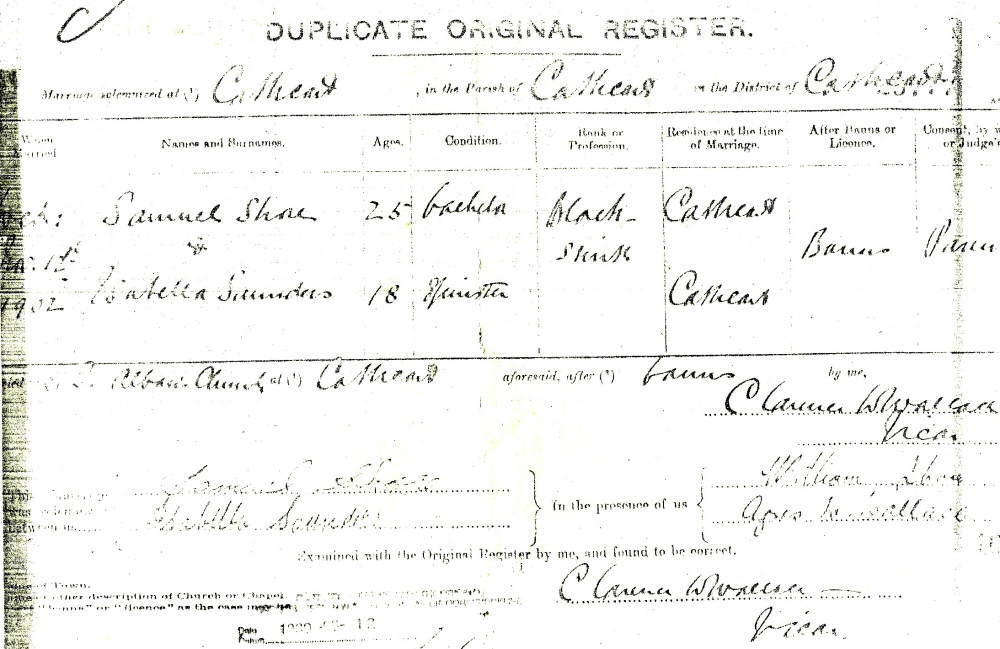 DUPLICATE ORIGINAL REGISTER.
Marriage solemnized at (¹) Cathcart , in the Parish of Cathcart in the District of Cathcart
When Married. Names and Surnames. Ages. Condition. Rank or Profession. Residence at the time of Marriage. After Banns or Licence. Consent, by w or Judge's
Samuel Shone 25 bachelor Black- Cathcart
& smith Banns
1902 Isabella Saunders 18 Spinster Cathcart
Alban Church at (¹) Cathcart aforesaid, after (³) banns by me,
Clarence W Wallace
Vicar
Samuel William
Isabella Saunders In the presence of us Agnes W Wallace
Examined with the Original Register by me, and found to be correct.
of Town.
other description of Church or Chapel.
"banns" or "licence" as the case may be
Clarence W Wallace
Vicar